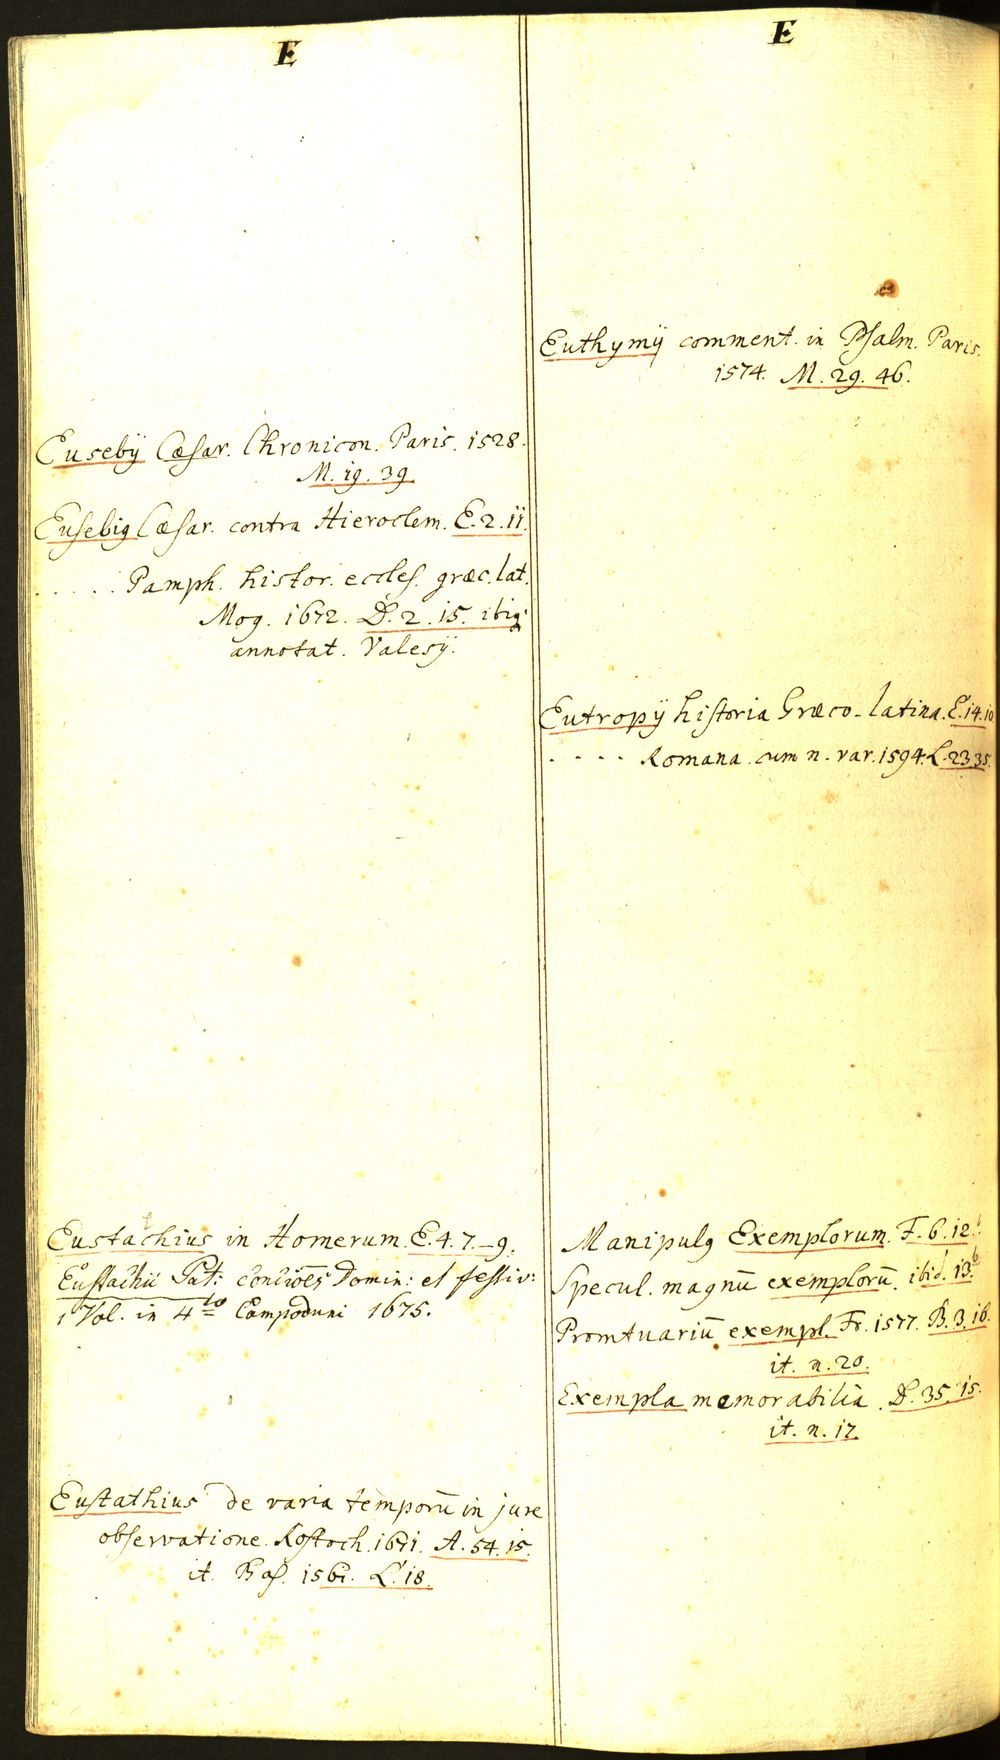 E
Eusebÿ Cæsar. Chronicon. Paris. 1528.
M. 19. 39.
Eusebiꝰ Cæsar. contra Hieroclem. E. 2. 11.
. . . . . Pamph. histor. eccles. græc. lat.
Mog. 1672. D. 2. 15. ibiq;
annotat. Valesÿ.
Eustachius in Homerum. E. 4. 7. – 9.
Eustachii Pat: Conciões Domin: et festiv:
1 Vol. in 4to Campoduni 1675.
Eustathius de varia temporū in jure
observatione. Rostoch. A. 54. 15.
it. Bas. L. 18.
E
Euthymÿ comment. in Psalm. Paris.
1574. M. 29. 46.
Eutropÿ historia Græco-latina. E. 14. 10
. . . . Romana cum n. var. 1594. L. 23. 35.
Manipulꝰ Exemplorum. F. 6. 12.
Specul. magnū exemplorū. ibid. 13.
Promtuariū exempl. Fr. 1577. B. 3. 16.
it. n. 20.
Exempla memorabilia. D. 35. 15.
it. n. 17.